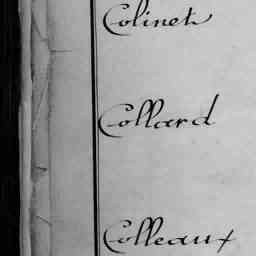 Colinet
Collard
Colleaux